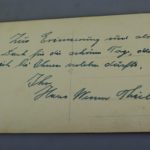 Zur Erinnerung und als
Dank für die schönen Tage, die
ich bei Ihnen verleben durfte.
Ihr
Hans Werner Thiel